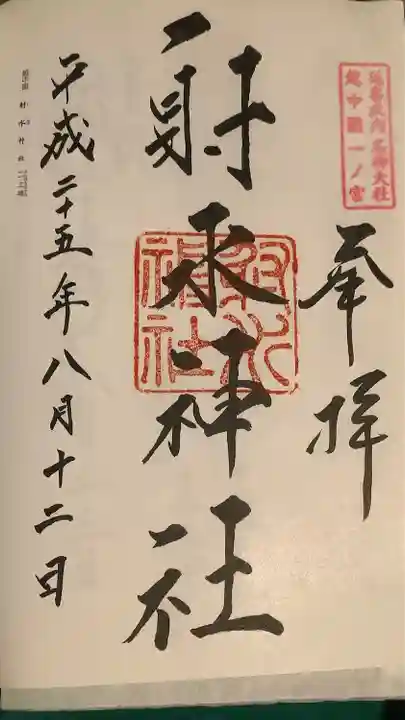 延喜式内名神大社
越中國一ノ宮
奉拝
射水神社
射水神社
平成二十五年八月十二日